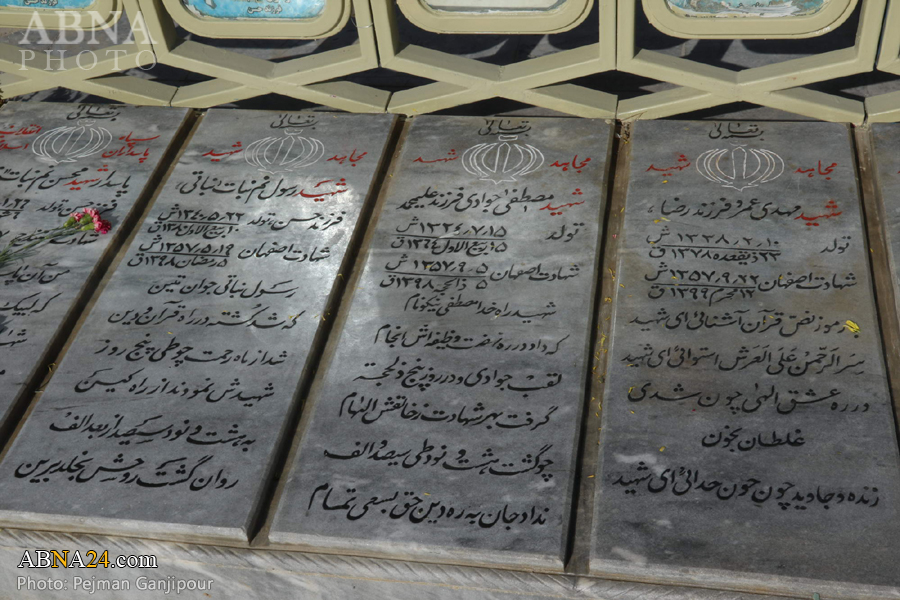 ABNA
PHOTO
بقتعالی
مجاهد شهید
شهید مهدی عمرو فرزند رضا
تولد ۱۳۳۸٫۲٫۱۰ ش
۲۳ ذیقعده ۱۳۷۸ ق
شهادت اصفهان ۱۳۵۷٫۹٫۲۲ ش
۱۲ محرم ۱۳۹۹ ق
رموز نص قرآن آشنائی ای شهید
سر الرحمن علی العرش استوائی ای شهید
در ره عشق الهی چون شدی
غلطان بخون
زنده و جاوید چون خون خدائی ای شهید
بقتعالی
مجاهد شهید
شهید مصطفی جوادی فرزند علیمحمد
تولد ۱۳۲۴٫۷٫۱۵ ش
ربیع الاول ۱۳۶۴ ق
شهادت اصفهان ۱۳۵۷٫۹٫۵ ش
۵ ذالحجه ۱۳۹۸ ق
شهید راه خدا مصطفی نیکونام
که داد در ره وظیفه‌اش انجام
لقب جوادی و در روز پنج ذلحجه
گرفت بهر شهادت ز خالقش الهام
چو گشت هشت و نود طی سیصد و الف
نداد جان به ره دین حق بسعی تمام
بقتعالی
مجاهد شهید
شهید رسول غم نبات نباتی
فرزند حسن تولد ۱۳۴۰٫۵٫۲۲ ش
ربیع الاول ق
شهادت اصفهان ۱۳۵۷٫۵٫۱۹ ش
۵ رمضان ۱۳۹۸ ق
رسول نباتی جوان متین
که شد کشته در راه قرآن و دین
شد از ماه رحمت چو طی پنج روز
شهیدش نمودند از راه کین
به هشت و نود سیصد از بعد الف
روان گشت روحش بخلد برین
بقتعالی
سپاه پاسداران انقلاب
پاسدار شهید محسن غم نبات
تولد
من آن
که لبیک
ABNA24.com
Photo: Pejman Ganjipour